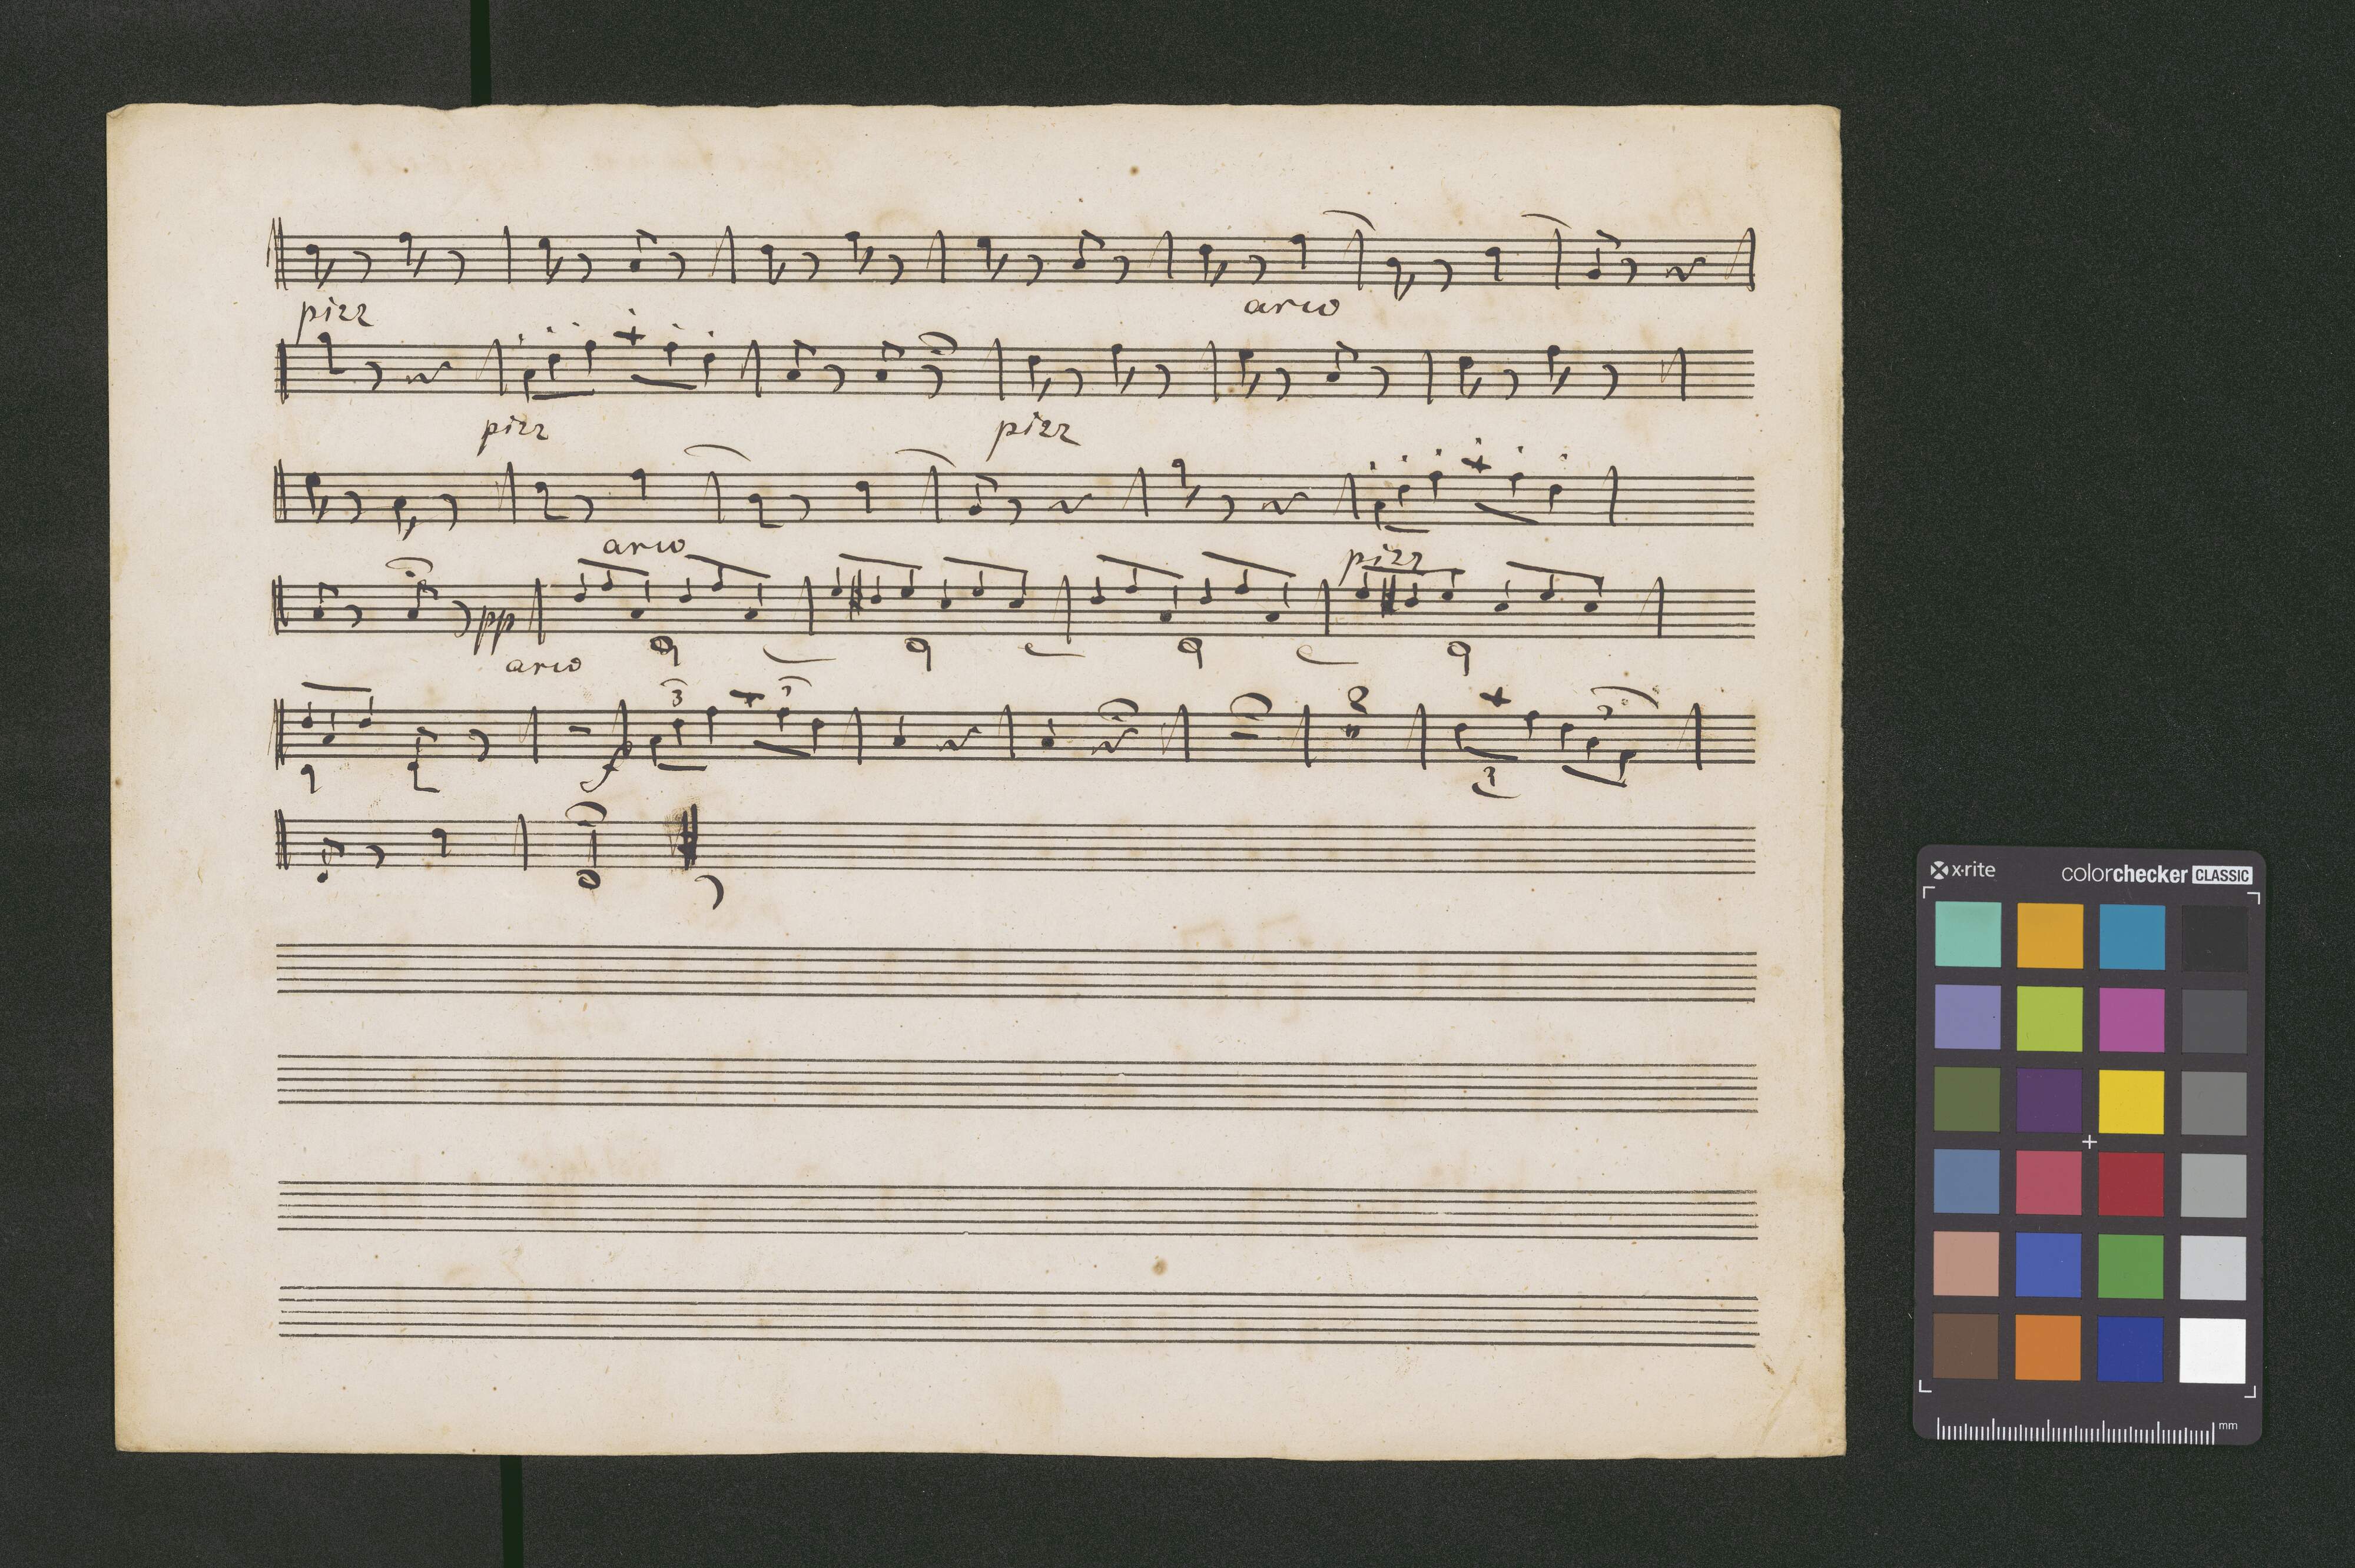 pizz arco
pizz pizz
arco pizz
pp
arco
3 3
f
2
3 3
x·rite colorchecker CLASSIC
mm